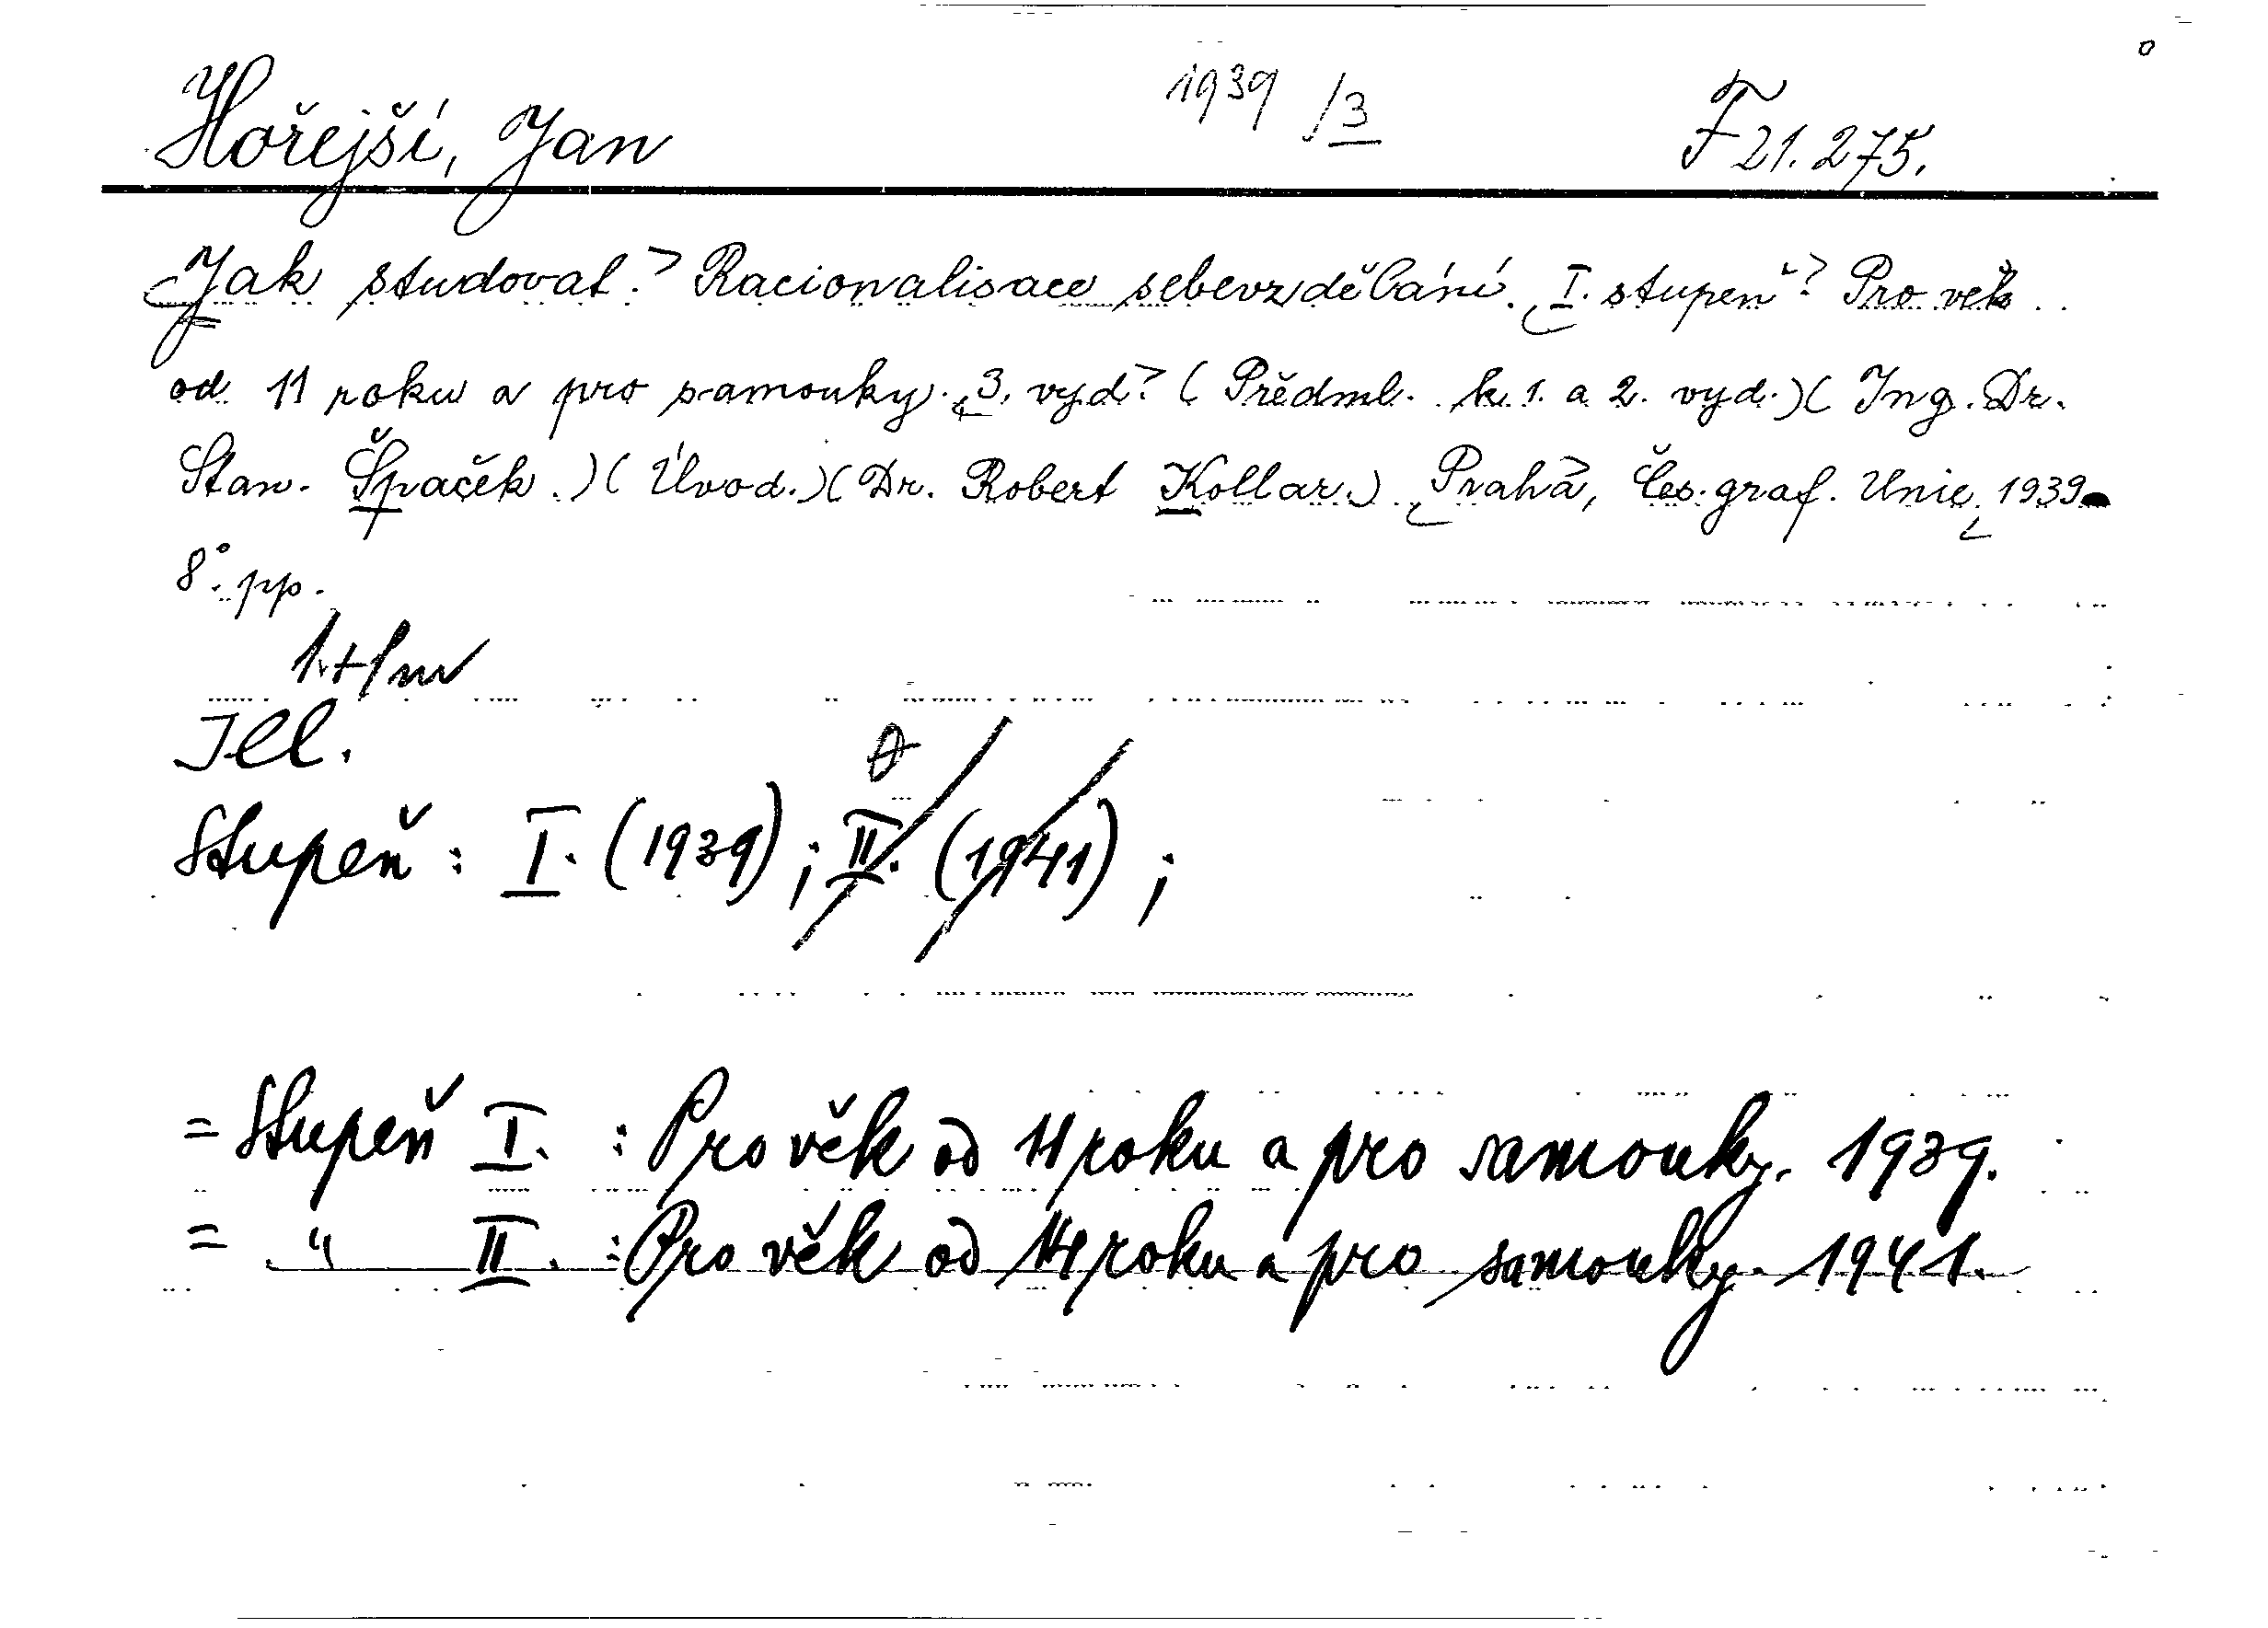 Hořejší, Jan 1939 /3 F 21.275.
Jak studovat? Racionalisace sebevzdělání. I. stupeň? Pro věk
od 11 roku a pro samouky. 3. vyd. (Předml. k 1. a 2. vyd.)(Ing. Dr.
Stan. Špaček.)(Úvod.)(Dr. Robert Kollar.) Praha, Čes. graf. Unie, 1939.
8°. pp.
Ill.
Stupeň: I. (1939); II. (1941);
= Stupeň I. : Pro věk od 11 roku a pro samouky. 1939.
= " II. : Pro věk od 14 roku a pro samouky. 1941.